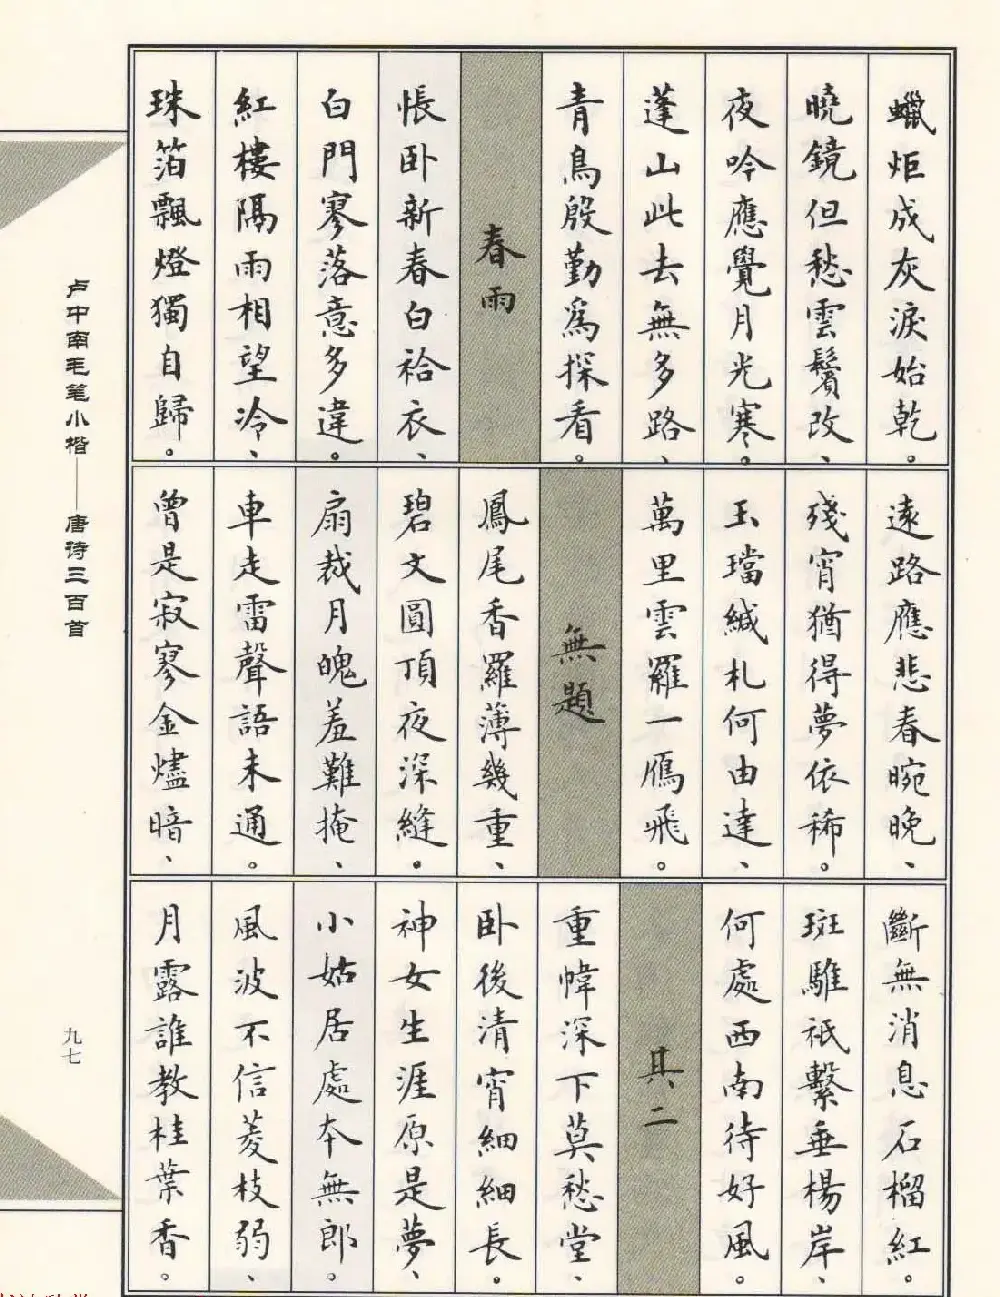 蠟炬成灰淚始乾。
曉鏡但愁雲鬢改、
夜吟應覺月光寒。
蓬山此去無多路、
青鳥殷勤爲探看。
春雨
悵卧新春白袷衣、
白門寥落意多違。
紅樓隔雨相望冷、
珠箔飄燈獨自歸。
遠路應悲春晼晚、
殘宵猶得夢依稀。
玉璫緘札何由達、
萬里雲羅一鴈飛。
無題
鳳尾香羅薄幾重、
碧文圓頂夜深縫。
扇裁月魄羞難掩、
車走雷聲語未通。
曾是寂寥金燼暗、
斷無消息石榴紅。
斑騅祇繫垂楊岸、
何處西南待好風。
其二
重幃深下莫愁堂、
卧後清宵細細長。
神女生涯原是夢、
小姑居處本無郎。
風波不信菱枝弱、
月露誰教桂葉香。
卢中南毛笔小楷——唐诗三百首
九七